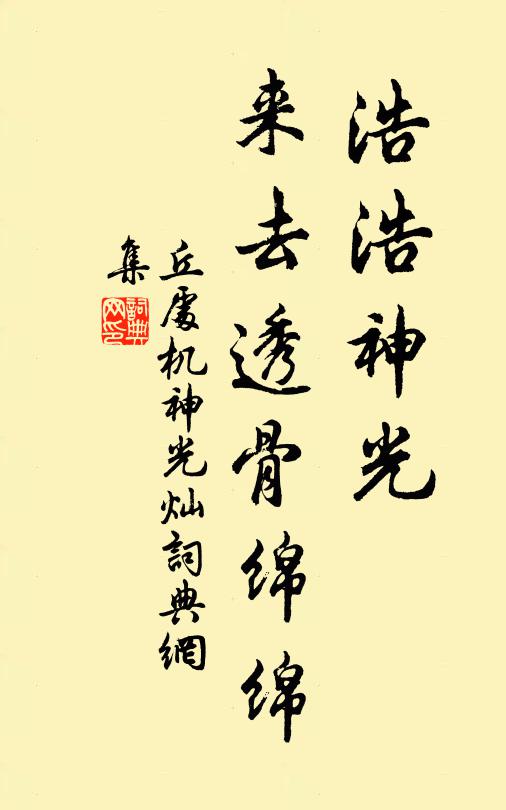 浩浩神光
来去透骨绵绵
丘處机神光灿詞典網
集
詞典网印